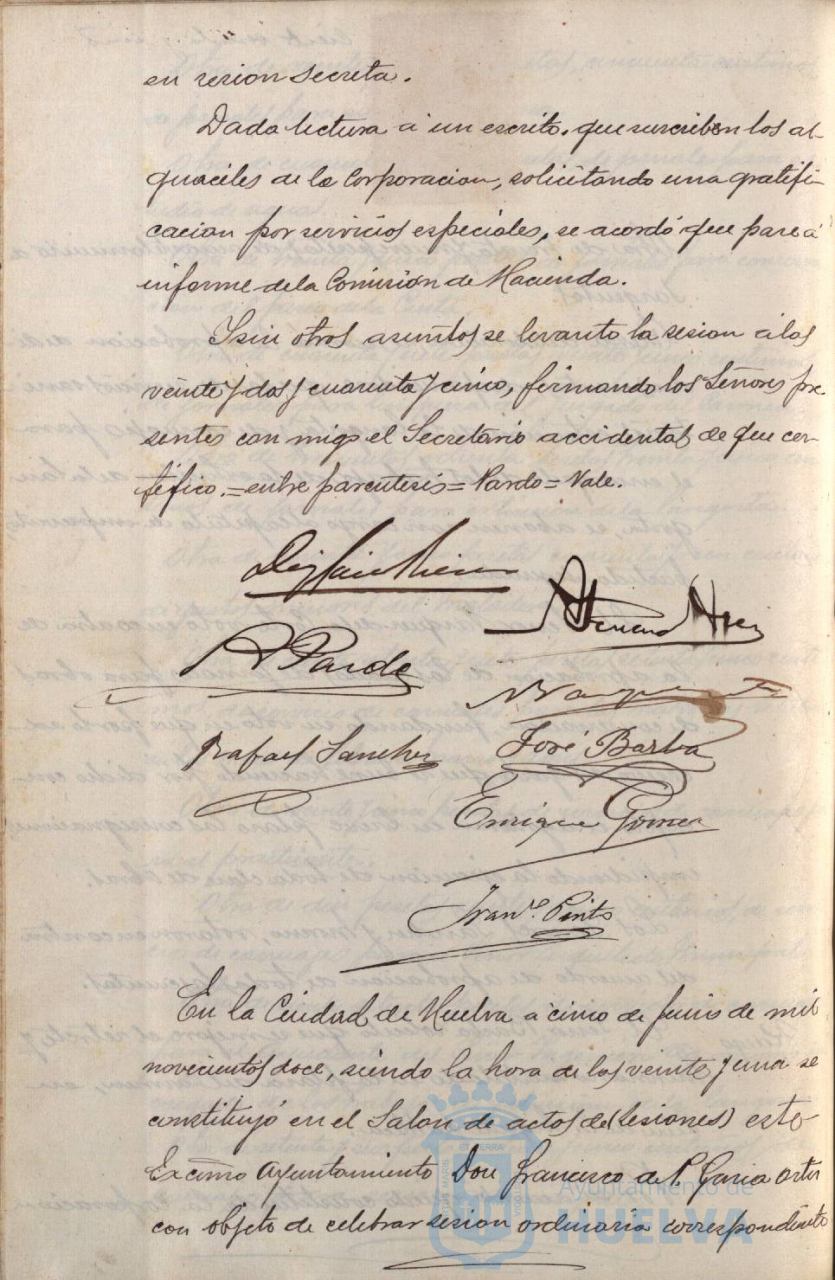 en sesion secreta.
Dada lectura á un escrito, que suscriben los al-
guaciles de la Corporacion, solicitando una gratifi-
cacion por servicios especiales, se acordó que pase á
informe de la Comisión de Hacienda.
Y sin otros asuntos se levanto la sesion á las
veinte y dos y cuarenta y cinco, firmando los Señores pre-
sentes con migo el Secretario accidental de que cer-
tifico.=entre parentesis=Pardo=Vale.
A Pardo
Rafael Sanchez
José Barba
Enrique Gomez
Fran.º Pinto
En la Ciudad de Huelva á cinco de Junio de mil
novecientos doce, siendo la hora de las veinte y una se
constituyó en el Salon de actos de (sesiones) este
Excmo Ayuntamiento Don Francisco de P. Garcia Ortiz
con objeto de celebrar sesion ordinaria correspondiente
Ayuntamiento de
HUELVA